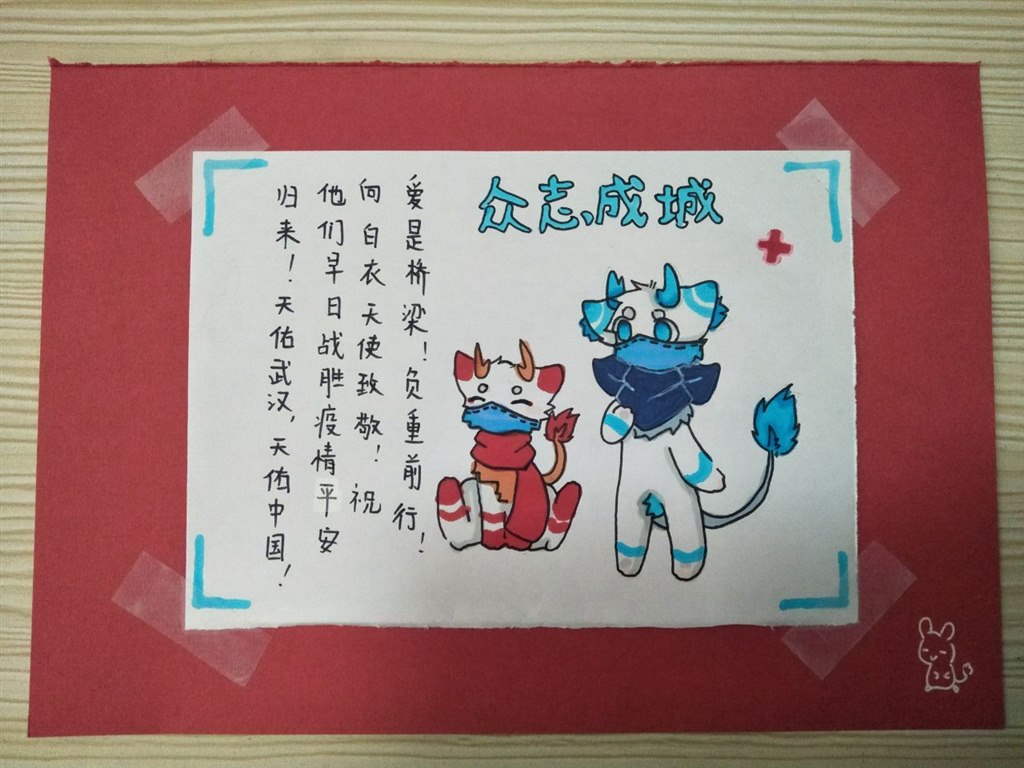 众志成城
爱是桥梁！负重前行！
向白衣天使致敬！祝
他们早日战胜疫情平安
归来！天佑武汉，天佑中国！